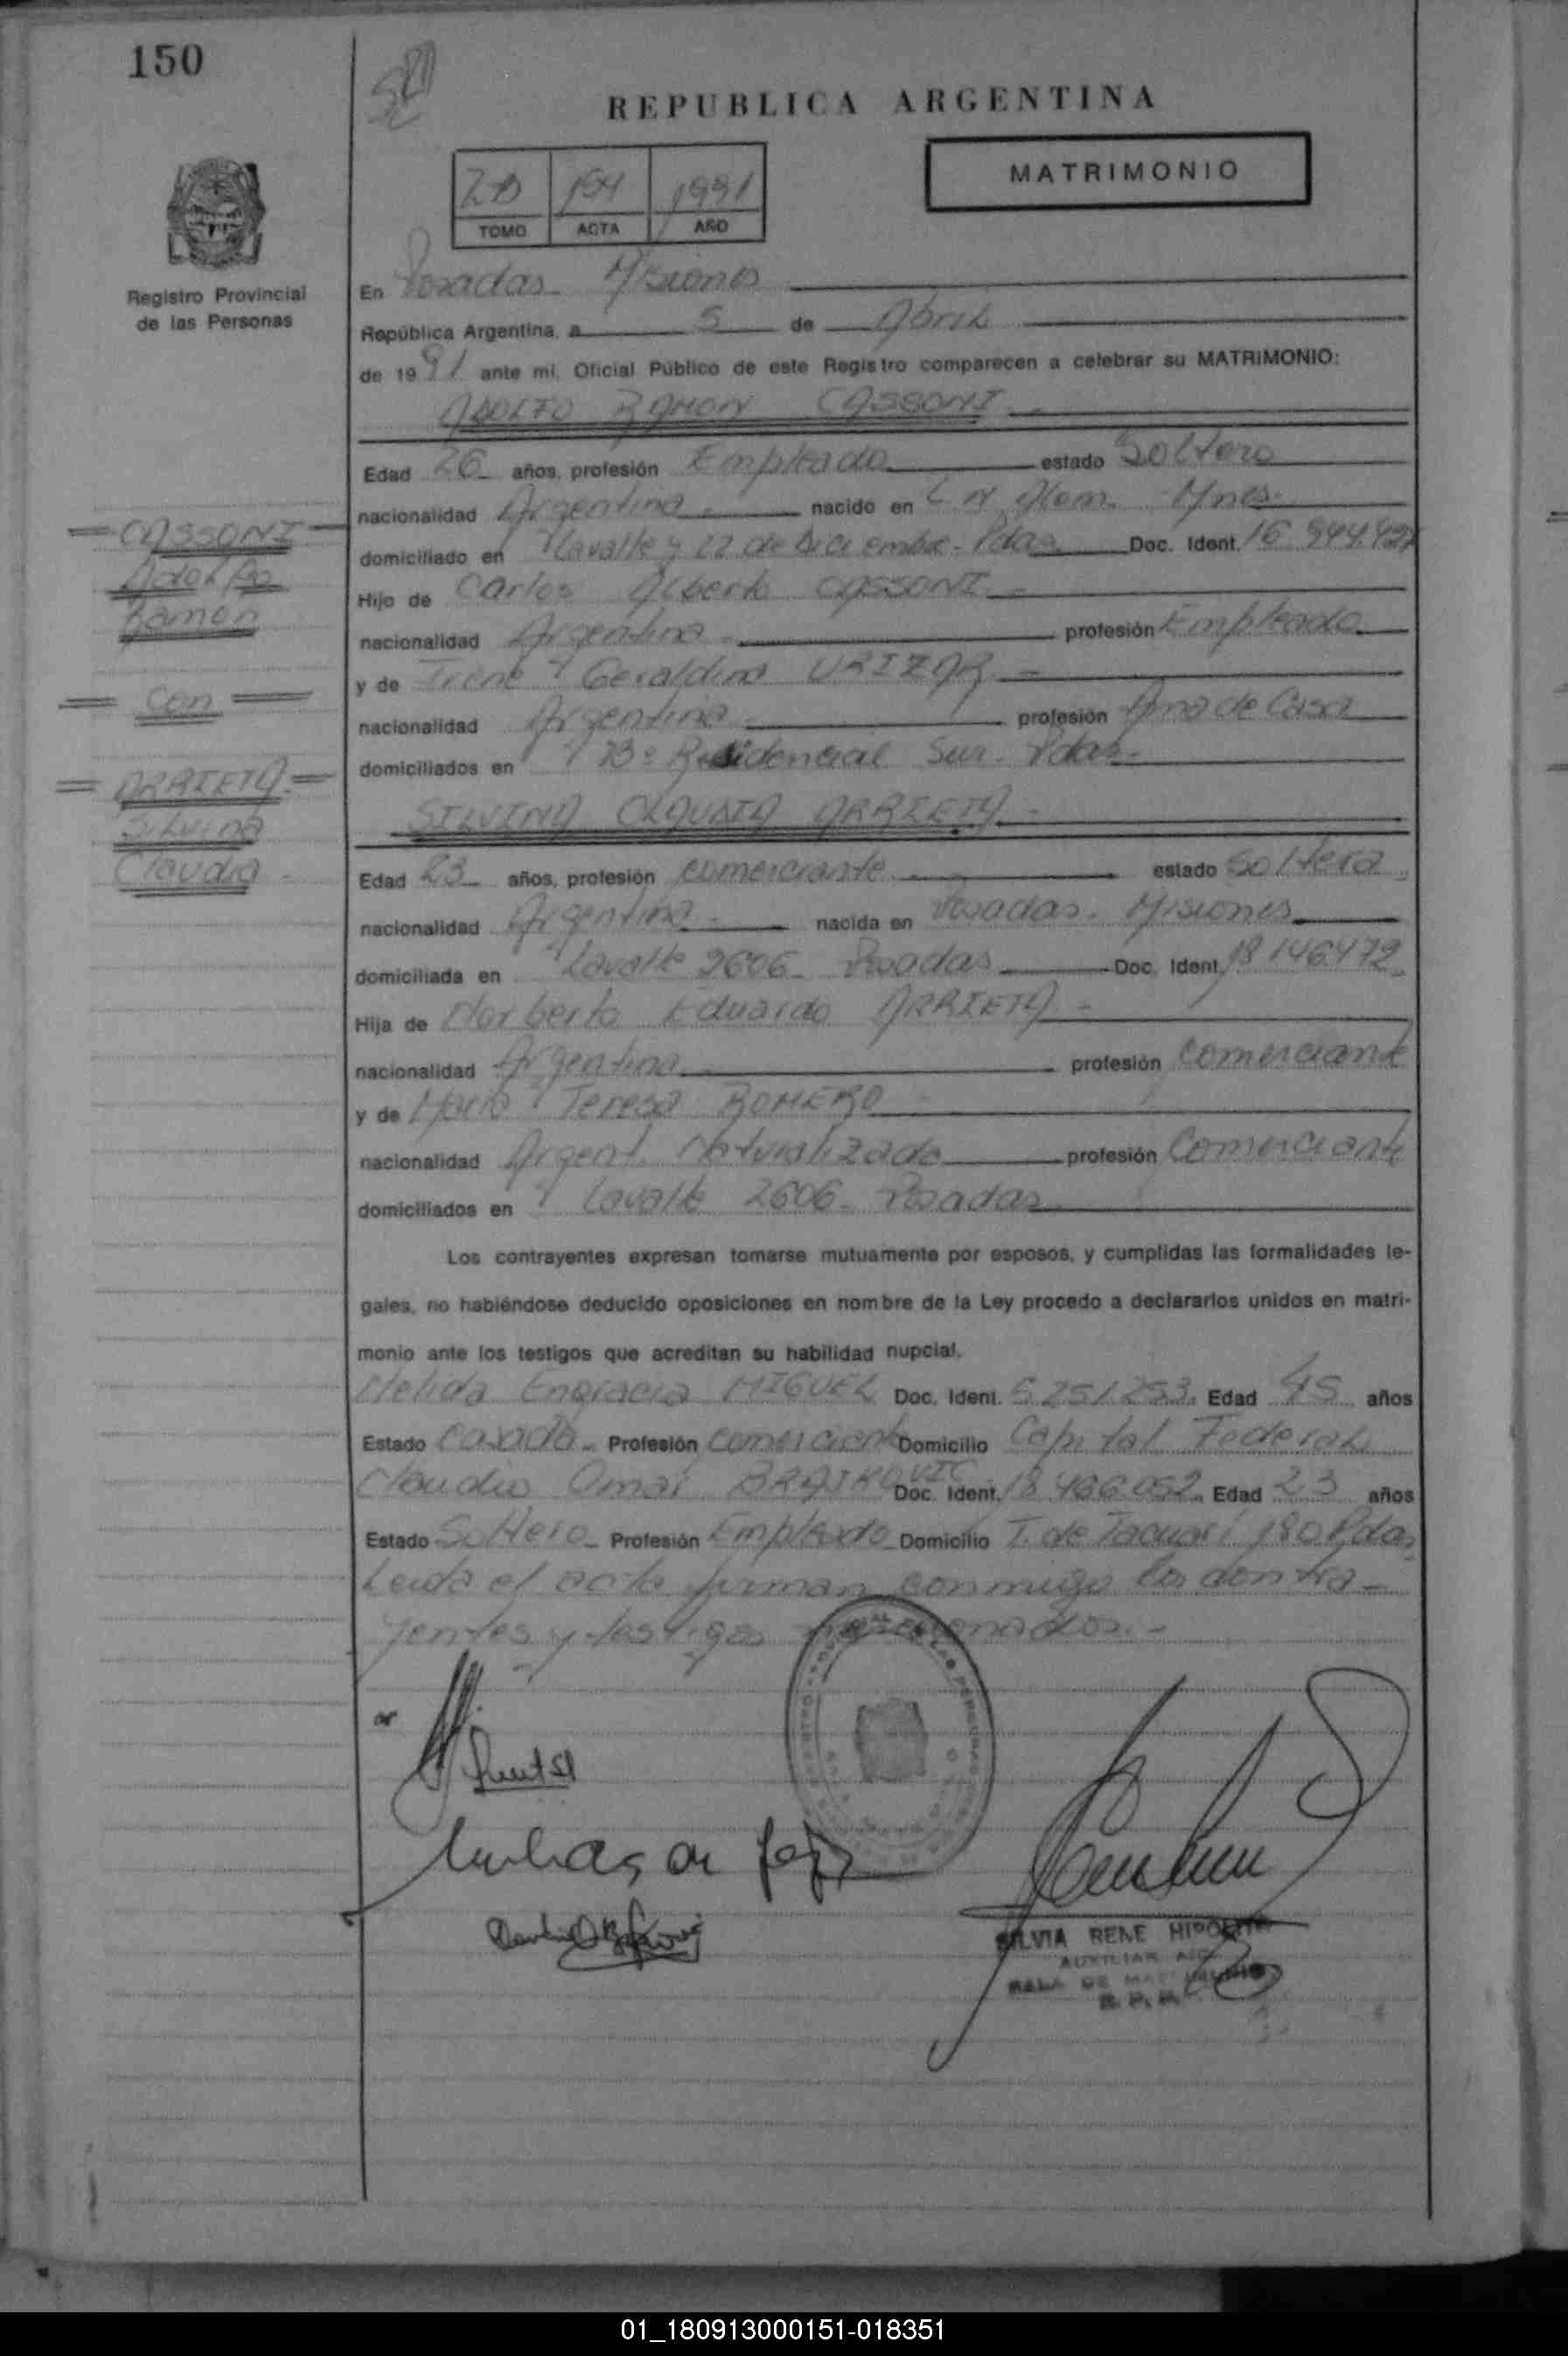 150
REPUBLICA ARGENTINA
MATRIMONIO
1991
TOMO ACTA AÑO
Registro Provincial
de las Personas
En Posadas Misiones
República Argentina, a 5 de Abril
de 1991 ante mí, Oficial Público de este Registro comparecen a celebrar su MATRIMONIO:
ADOLFO RAMON CASSONI
Edad 26 años, profesión Empleado estado Soltero
nacionalidad Argentina nacido en L N Alem. Mnes.
domiciliado en Lavalle y 22 de Diciembre - Pdas Doc. Ident. 16 944.427
Hijo de Carlos Alberto CASSONI
nacionalidad Argentina profesión Empleado
y de Irene Geraldina URIZAR
nacionalidad Argentina profesión Ama de Casa
domiciliados en Bº Residencial Sur - Pdas -
SILVINA CLAUDIA ARRIETA -
Edad 23 años, profesión comerciante estado Soltera
nacionalidad Argentina nacida en Posadas. Misiones
domiciliada en Lavalle 2606 - Posadas Doc. Ident. 18 146.472
Hija de Norberto Eduardo ARRIETA -
nacionalidad Argentina profesión Comerciante
y de María Teresa ROMERO
nacionalidad Argent. Naturalizada profesión Comerciante
domiciliados en Lavalle 2606 - Posadas
Los contrayentes expresan tomarse mutuamente por esposos, y cumplidas las formalidades le-
gales, no habiéndose deducido oposiciones en nombre de la Ley procedo a declararlos unidos en matri-
monio ante los testigos que acreditan su habilidad nupcial.
Nelida Engracia MIGUEL Doc. Ident. 5.251.253. Edad 45 años
Estado Casada - Profesión comerciante Domicilio Capital Federal
Claudio Omar BRAJKOVIC Doc. Ident. 18.466.052 Edad 23 años
Estado Soltero - Profesión Empleado Domicilio T. de Tacuarí 180 Pdas
Leida el acta firman conmigo los contra-
yentes y testigos mencionados. -
SILVIA RENE HIPOLITO
AUXILIAR
SALA DE MATRIMONIO
R. P. P.
= CASSONI =
Adolfo
Ramon
= con =
= ARRIETA =
Silvina
Claudia -
01_180913000151-018351